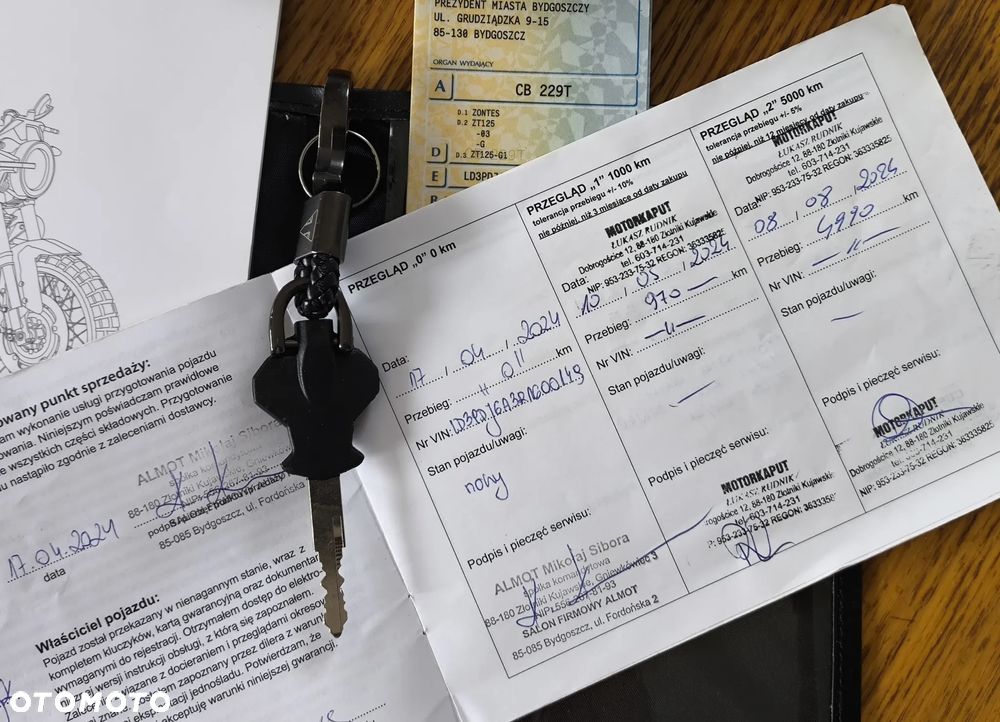 PREZYDENT MIASTA BYDGOSZCZY
UL. GRUDZIĄDZKA 9-15
85-130 BYDGOSZCZ
ORGAN WYDAJĄCY
A CB 229T
D.1 ZONTES
D.2 ZT125
-03
-G
D D.3 ZT125-G1
E LD3PD
PRZEGLĄD „0" 0 km
Data:
17 . 04 . 2024
Przebieg: 011 km
Nr VIN: LD3PDJ6A3R1600149
Stan pojazdu/uwagi:
nowy
Podpis i pieczęć serwisu:
ALMOT Mikołaj Sibora
spółka komandytowa
88-180 Złotniki Kujawskie, Gniewkówiec 3
NIP: 556-267-81-93
SALON FIRMOWY ALMOT
85-085 Bydgoszcz, ul. Fordońska 2
PRZEGLĄD „1" 1000 km
tolerancja przebiegu +/- 10%
nie później, niż 3 miesiące od daty zakupu
MOTORKAPUT
ŁUKASZ RUDNIK
Dobrogościce 12, 88-180 Złotniki Kujawskie
tel. 603-714-231
NIP: 953-233-75-32 REGON: 363335825
Data:
10 . 05 . 2024
Przebieg: 970 km
Nr VIN: -11-
Stan pojazdu/uwagi:
—
Podpis i pieczęć serwisu:
MOTORKAPUT
ŁUKASZ RUDNIK
12, 88-180 Złotniki Kujawskie
tel. 603-714-231
953-233-75-32 REGON: 363335825
PRZEGLĄD „2" 5000 km
tolerancja przebiegu +/- 5%
nie później, niż 12 miesięcy od daty zakupu
MOTORKAPUT
ŁUKASZ RUDNIK
Dobrogościce 12, 88-180 Złotniki Kujawskie
tel. 603-714-231
NIP: 953-233-75-32 REGON: 363335825
Data:
08 . 08 . 2024
Przebieg: 4990 km
Nr VIN: -11-
Stan pojazdu/uwagi:
—
Podpis i pieczęć serwisu:
MOTORKAPUT
ŁUKASZ RUDNIK
Dobrogościce 12, 88-180 Złotniki Kujawskie
tel. 603-714-231
NIP: 953-233-75-32 REGON: 363335825
owany punkt sprzedaży:
am wykonanie usługi przygotowania pojazdu
owania. Niniejszym poświadczam prawidłowe
e wszystkich części składowych. Przygotowanie
u nastąpiło zgodnie z zaleceniami dostawcy.
ALMOT Mikołaj Sibora
spółka komandytowa
88-180
85-085 Bydgoszcz, ul. Fordońska
17.04.2024
data
Właściciel pojazdu:
Pojazd został przekazany w nienagannym stanie, wraz z
kompletem kluczyków, kartą gwarancyjną oraz dokumentami
wymaganymi do rejestracji. Otrzymałem dostęp do elektro-
wersji instrukcji obsługi, z którą się zapoznałem.
związane z docieraniem i przeglądami okresowymi
zapoznany przez dilera z warun
eksploatacji jednośladu. Potwierdzam, że
akceptuję warunki niniejszej gwarancji.
OTOMOTO